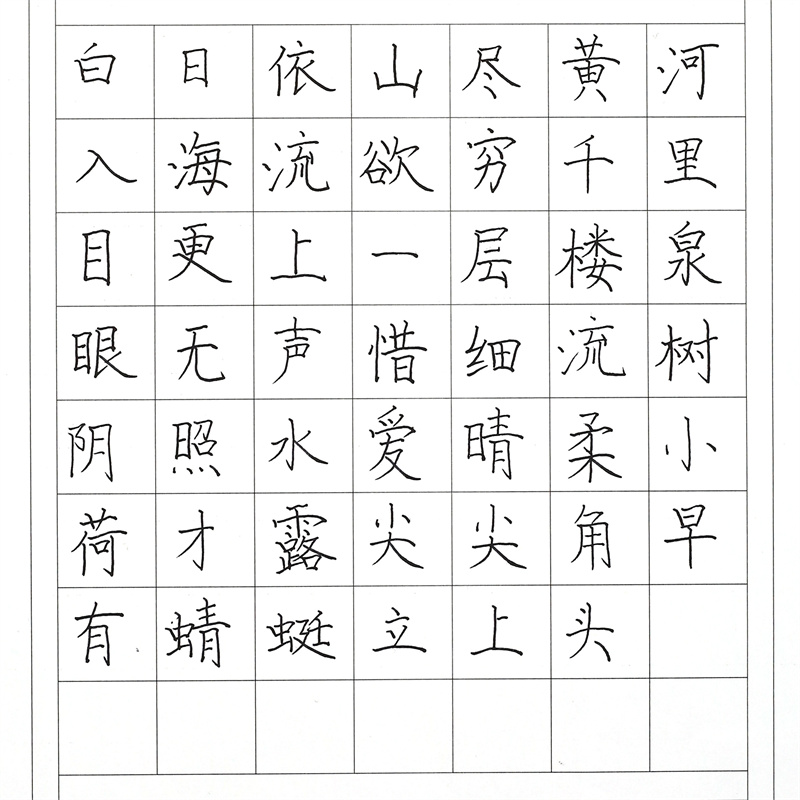 白日依山尽黄河
入海流欲穷千里
目更上一层楼泉
眼无声惜细流树
阴照水爱晴柔小
荷才露尖尖角早
有蜻蜓立上头